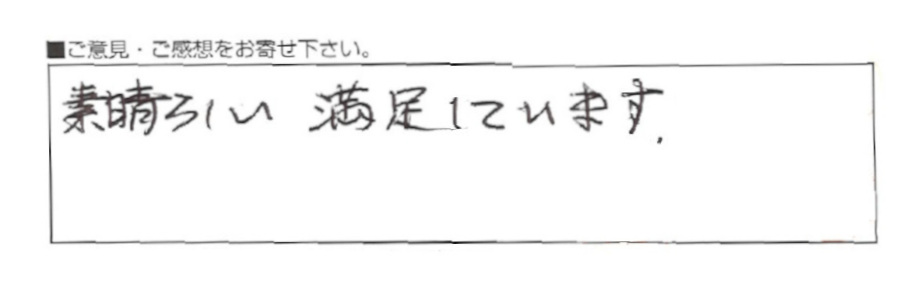 ■ご意見・ご感想をお寄せ下さい。
素晴らしい 満足しています.